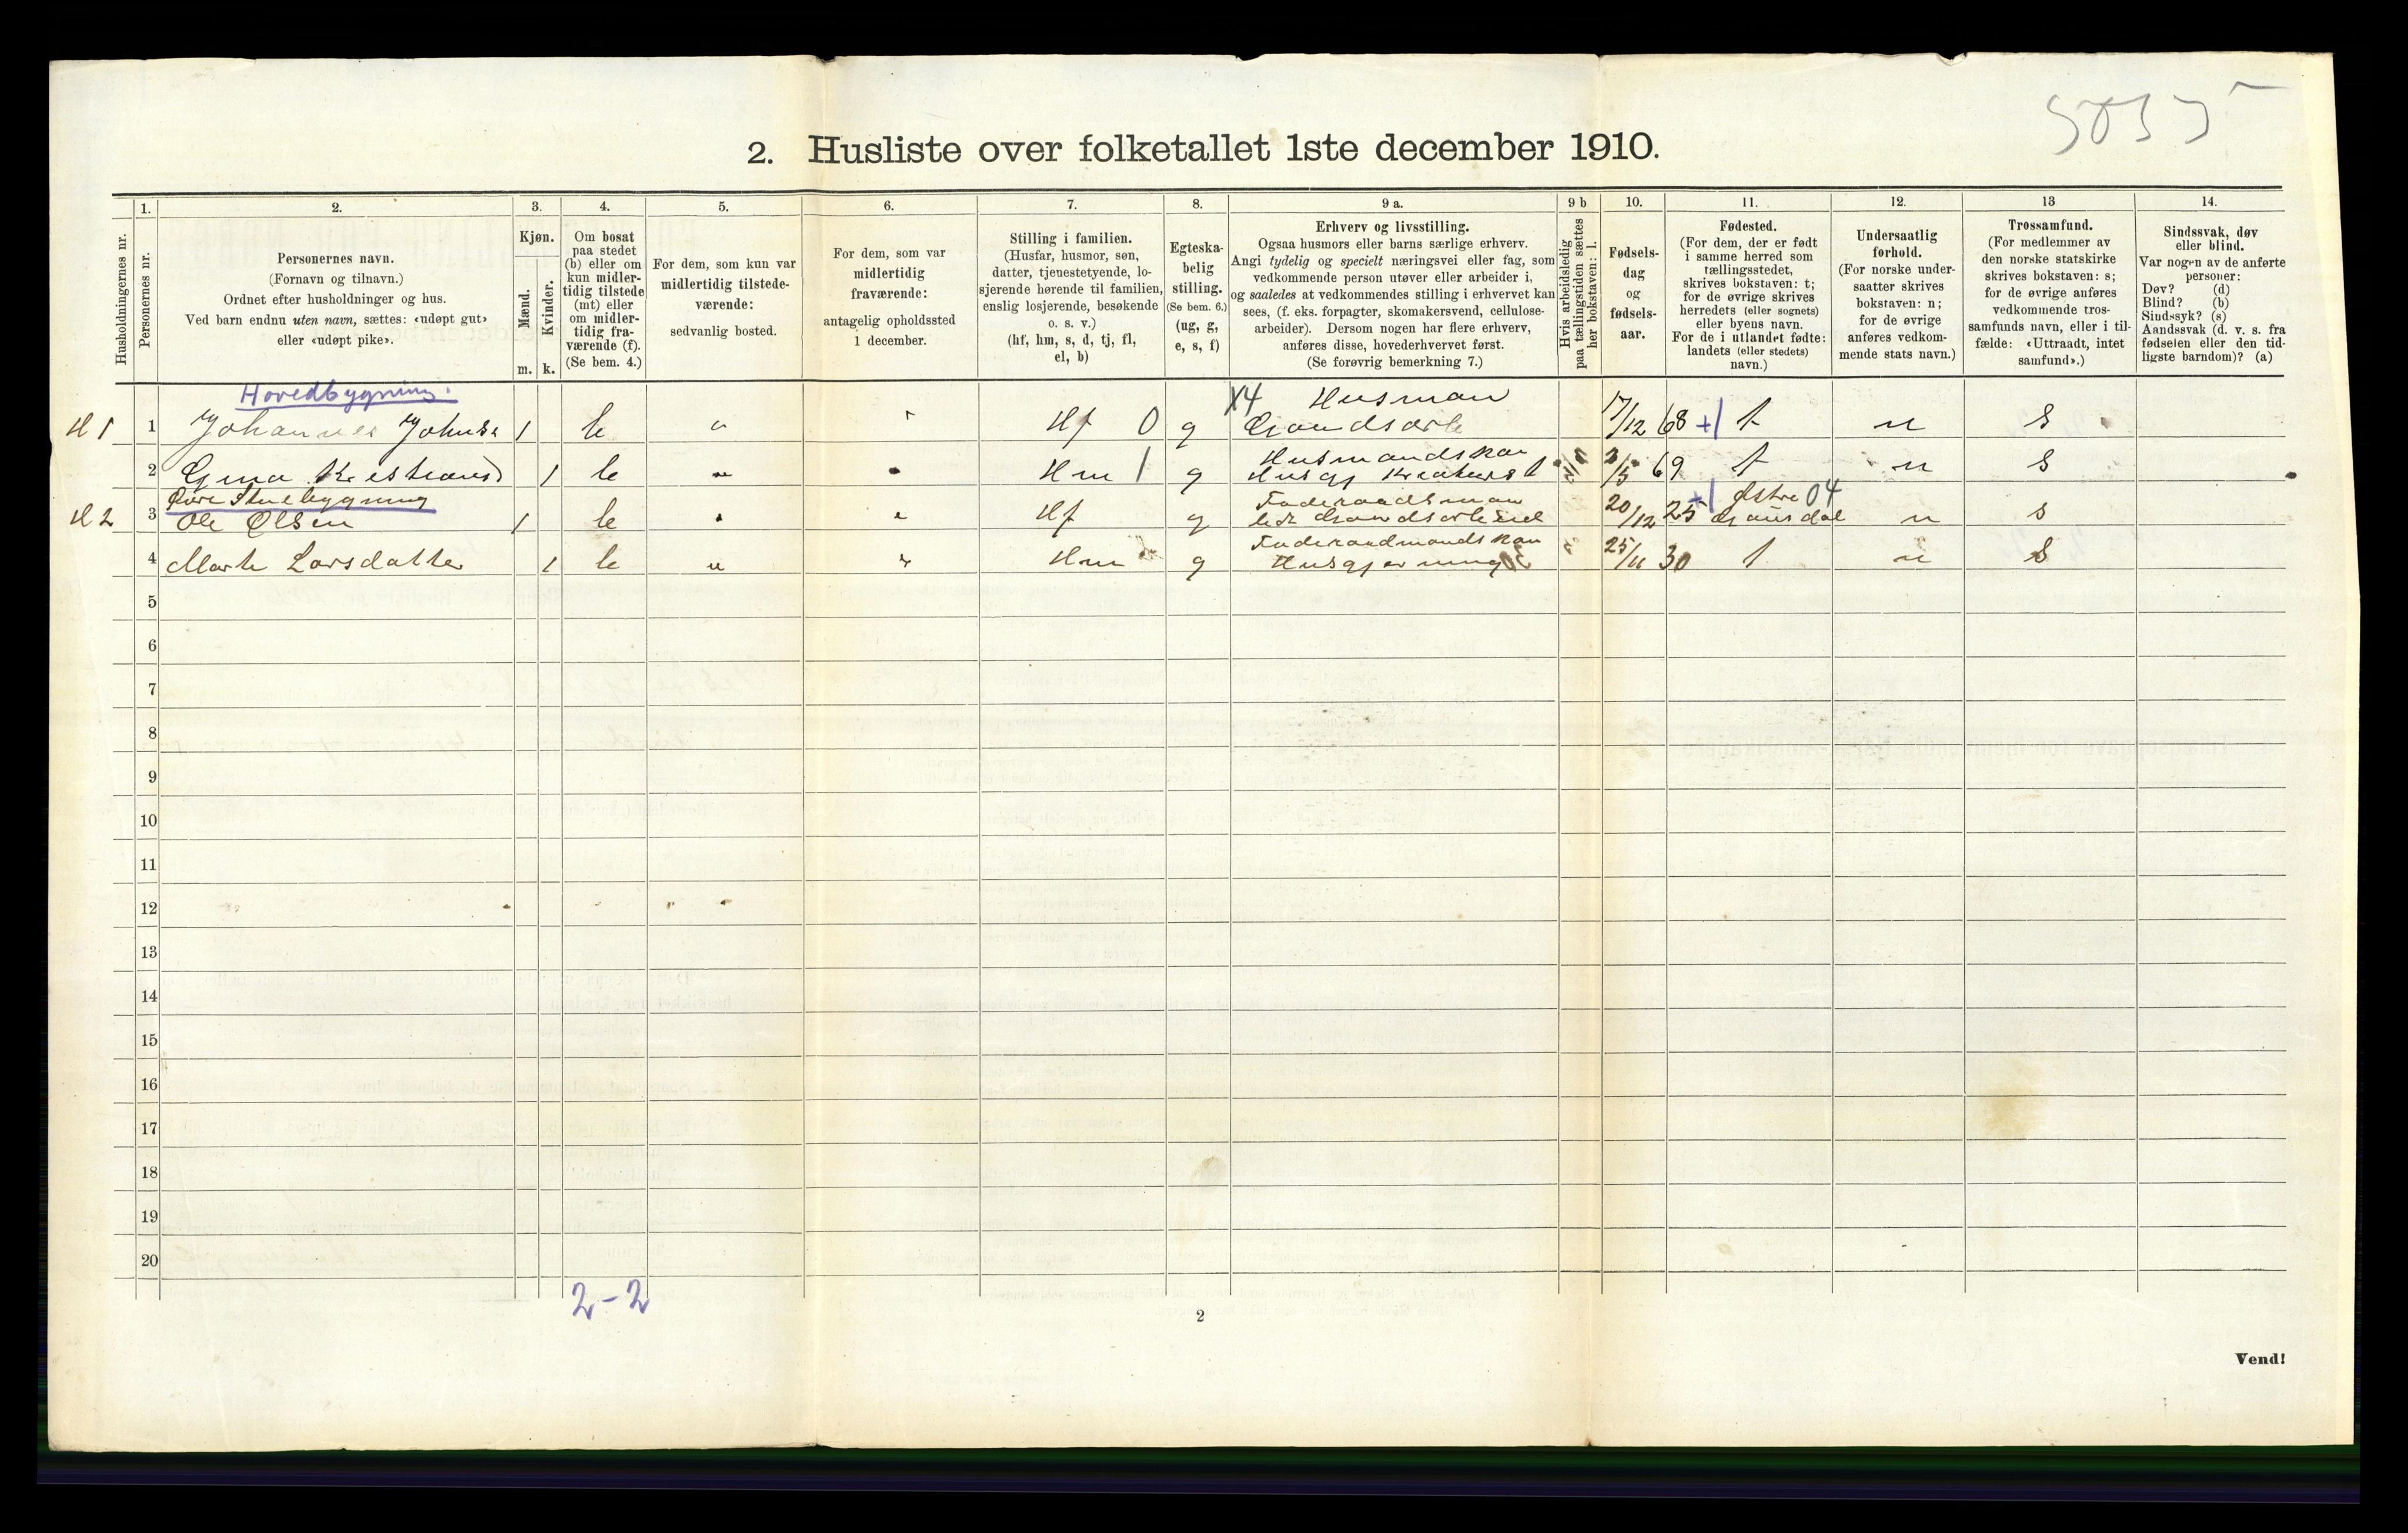 2. Husliste over folketallet 1ste december 1910.
Husholdningernes nr.
1.
Personernes nr.
2.
Personernes navn.
(Fornavn og tilnavn.)
Ordnet efter husholdninger og hus.
Ved barn endnu uten navn, sættes: «udøpt gut»
eller «udøpt pike».
3.
Kjøn.
Mænd.
Kvinder.
m. k.
4.
Om bosat
paa stedet
(b) eller om
kun midler-
tidig tilstede
(mt) eller
om midler-
tidig fra-
værende (f).
(Se bem. 4.)
5.
For dem, som kun var
midlertidig tilstede-
værende:
sedvanlig bosted.
6.
For dem, som var
midlertidig
fraværende:
antagelig opholdssted
1 december.
7.
Stilling i familien.
(Husfar, husmor, søn,
datter, tjenestetyende, lo-
sjerende hørende til familien,
enslig losjerende, besøkende
o. s. v.)
(hf, hm, s, d, tj, fl,
el, b)
8.
Egteska-
belig
stilling.
(Se bem. 6.)
(ug, g,
e, s, f)
9 a.
Erhverv og livsstilling.
Ogsaa husmors eller barns særlige erhverv.
Angi tydelig og specielt næringsvei eller fag, som
vedkommende person utøver eller arbeider i,
og saaledes at vedkommendes stilling i erhvervet kan
sees, (f. eks. forpagter, skomakersvend, cellulose-
arbeider). Dersom nogen har flere erhverv,
anføres disse, hovederhvervet først.
(Se forøvrig bemerkning 7.)
9 b
Hvis arbeidsledig
paa tællingstiden sættes
her bokstaven: l.
10.
Fødsels-
dag
og
fødsels-
aar.
11.
Fødested.
(For dem, der er født
i samme herred som
tællingsstedet,
skrives bokstaven: t;
for de øvrige skrives
herredets (eller sognets)
eller byens navn.
For de i utlandet fødte:
landets (eller stedets)
navn.)
12.
Undersaatlig
forhold.
(For norske under-
saatter skrives
bokstaven: n;
for de øvrige
anføres vedkom-
mende stats navn.)
13
Trossamfund.
(For medlemmer av
den norske statskirke
skrives bokstaven: s;
for de øvrige anføres
vedkommende tros-
samfunds navn, eller i til-
fælde: «Uttraadt, intet
samfund».)
14.
Sindssvak, døv
eller blind.
Var nogen av de anførte
personer:
Døv? (d)
Blind? (b)
Sindssyk? (s)
Aandssvak (d. v. s. fra
fødselen eller den tid-
ligste barndom)? (a)
Hovedbygning.
H 1 1 Johannes 1 b " " Hf 0 g X4 Husman 17/12 68 +1 t n s
Gaardsarb
2 1 b " " Hm 1 g Husmandskon /5 69 t n s
Husgj Kreaturst
Øvre Stuebygning
H 2 3 Ole Olsen 1 b " " Hf g Føderaadsman 20/12 25 +1 Østre 04 n s
Gausdal
4 Marte Larsdatter 1 b " " Hm g Føderaadmandskon 25/11 30 t n s
Husgjerning
5
6
7
8
9
10
11
12
13
14
15
16
17
18
19
20
2-2
2
Vend!